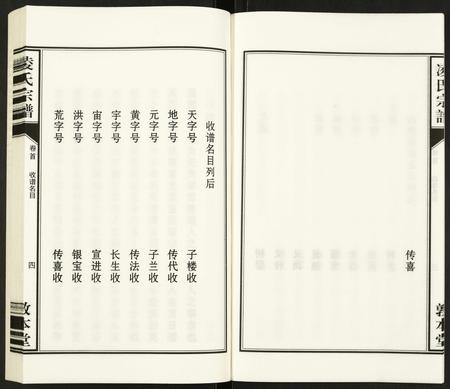 传喜
凌氏宗譜
敦本堂
收谱名目列后
天字号 子楼收
地字号 传代收
元字号 子兰收
黄字号 传法收
宇字号 长生收
宙字号 宣进收
洪字号 银宝收
荒字号 传喜收
凌氏宗譜
卷首 收谱名目
四
敦本堂